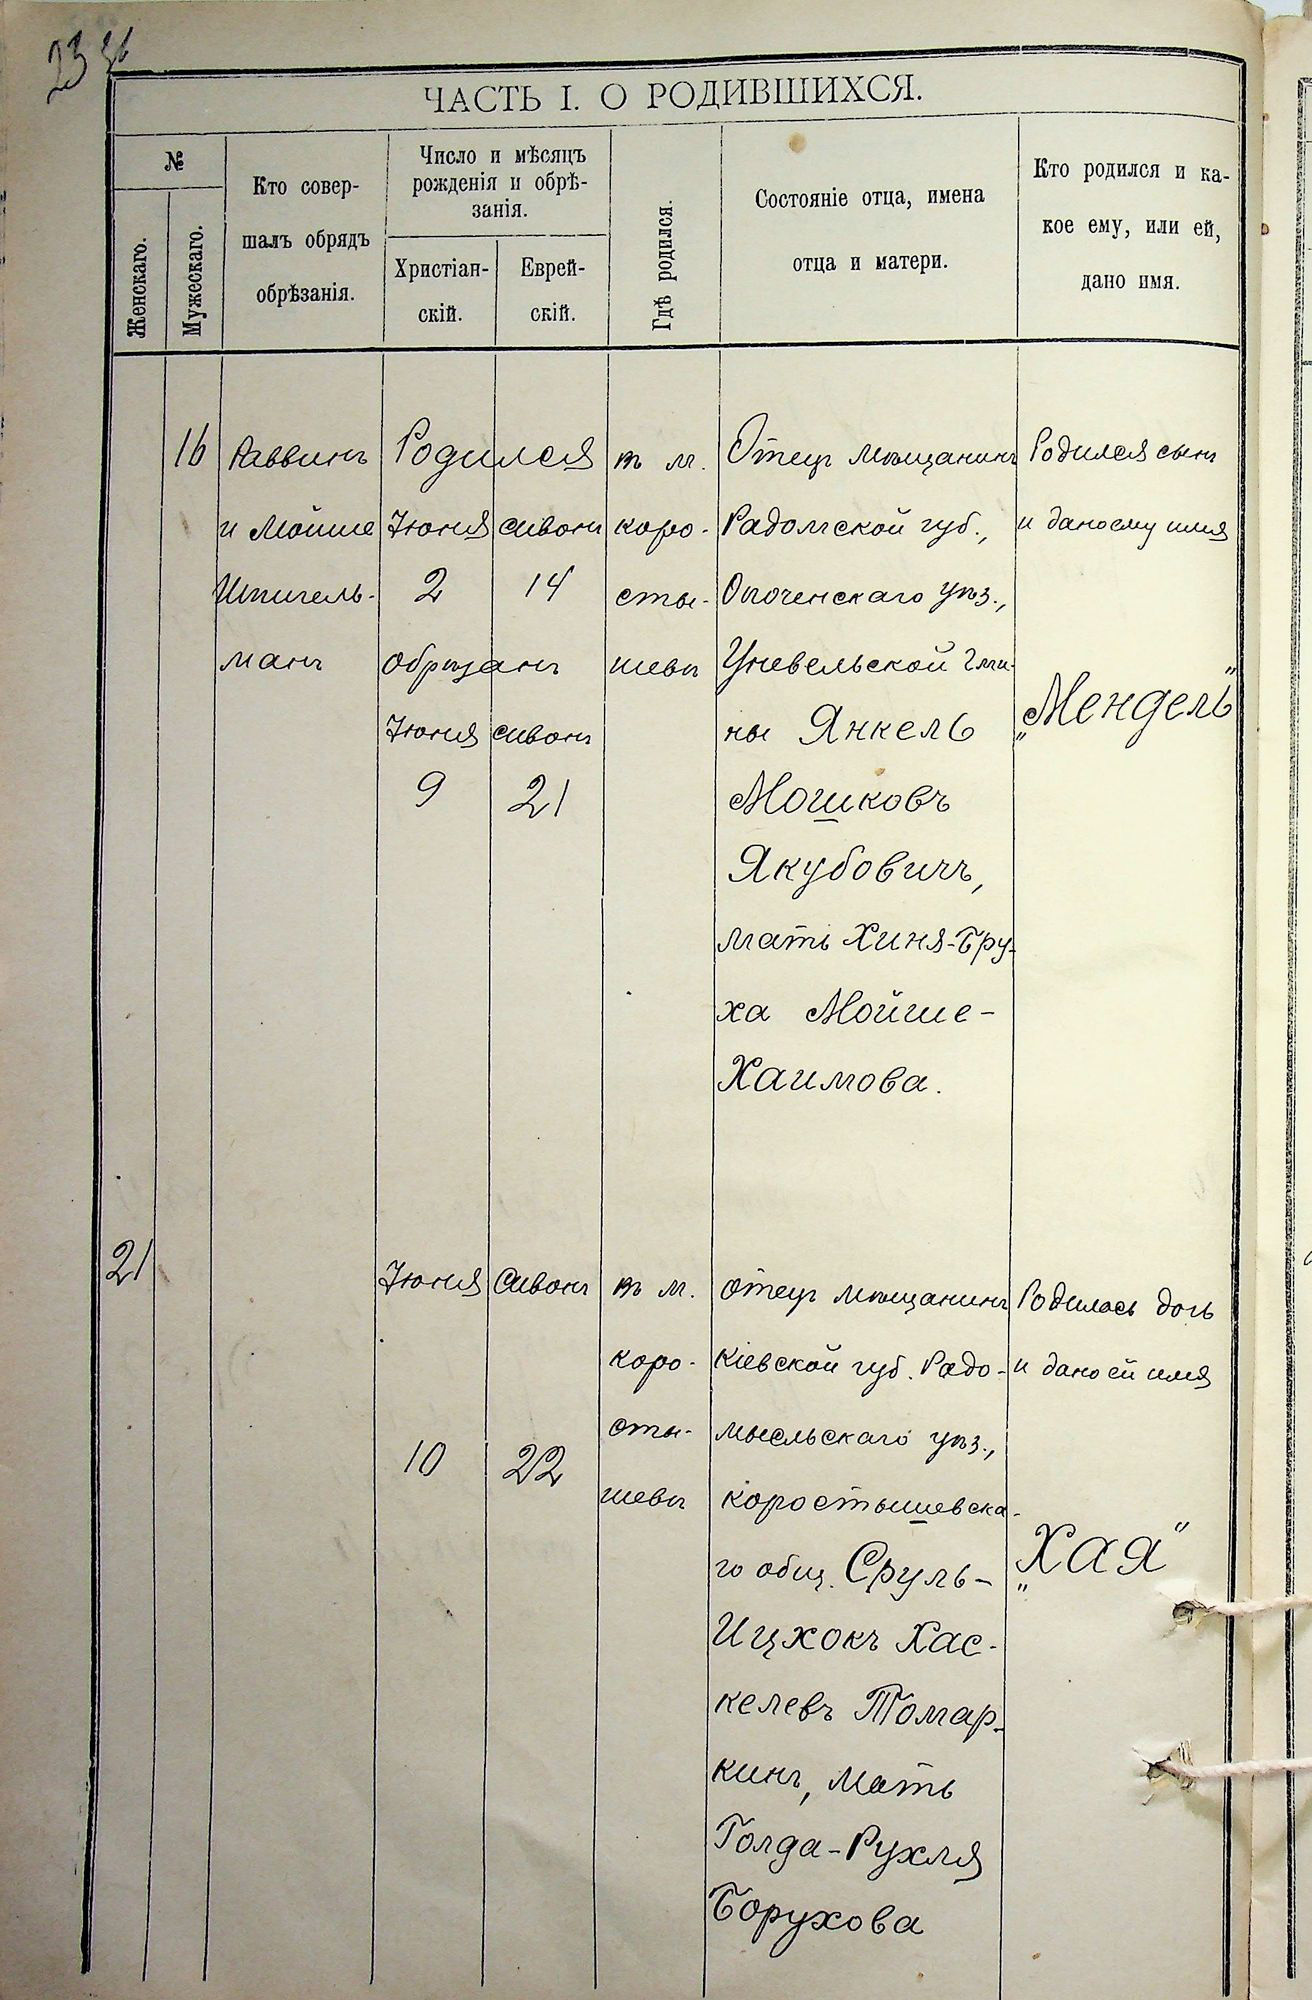 23
ЧАСТЬ I. О РОДИВШИХСЯ.
№
Женскаго.
Мужескаго.
Кто совер-
шалъ обрядъ
обрѣзанія.
Число и мѣсяцъ
рожденія и обрѣ-
занія.
Христіан-
скій.
Еврей-
скій.
Гдѣ родился.
Состояніе отца, имена
отца и матери.
Кто родился и ка-
кое ему, или ей,
дано имя.
16
Раввинъ
и Мойше
Шпигель-
манъ
Родился
Іюня сивонъ
2 14
обрѣзанъ
Іюня сивонъ
9 21
въ м.
коро-
сты-
шевѣ
Отецъ мѣщанинъ
Радомской губ.,
Опоченскаго уѣз.,
Уневельской гми-
ны Янкель
Мошковъ
Якубовичъ,
мать Хиня-Бру-
ха Мойше-
Хаимова.
Родился сынъ
и дано ему имя
„Мендель"
21
Іюня Сивонъ
10 22
въ м.
коро-
сты-
шевѣ
отецъ мѣщанинъ
Кіевской губ. Радо-
мысльскаго уѣз.,
коростышевска-
го общ. Сруль-
Ицхокъ Хас-
келевъ Томар-
кинъ, мать
Голда-Рухля
Борухова
Родилась дочь
и дано ей имя
„Хая"